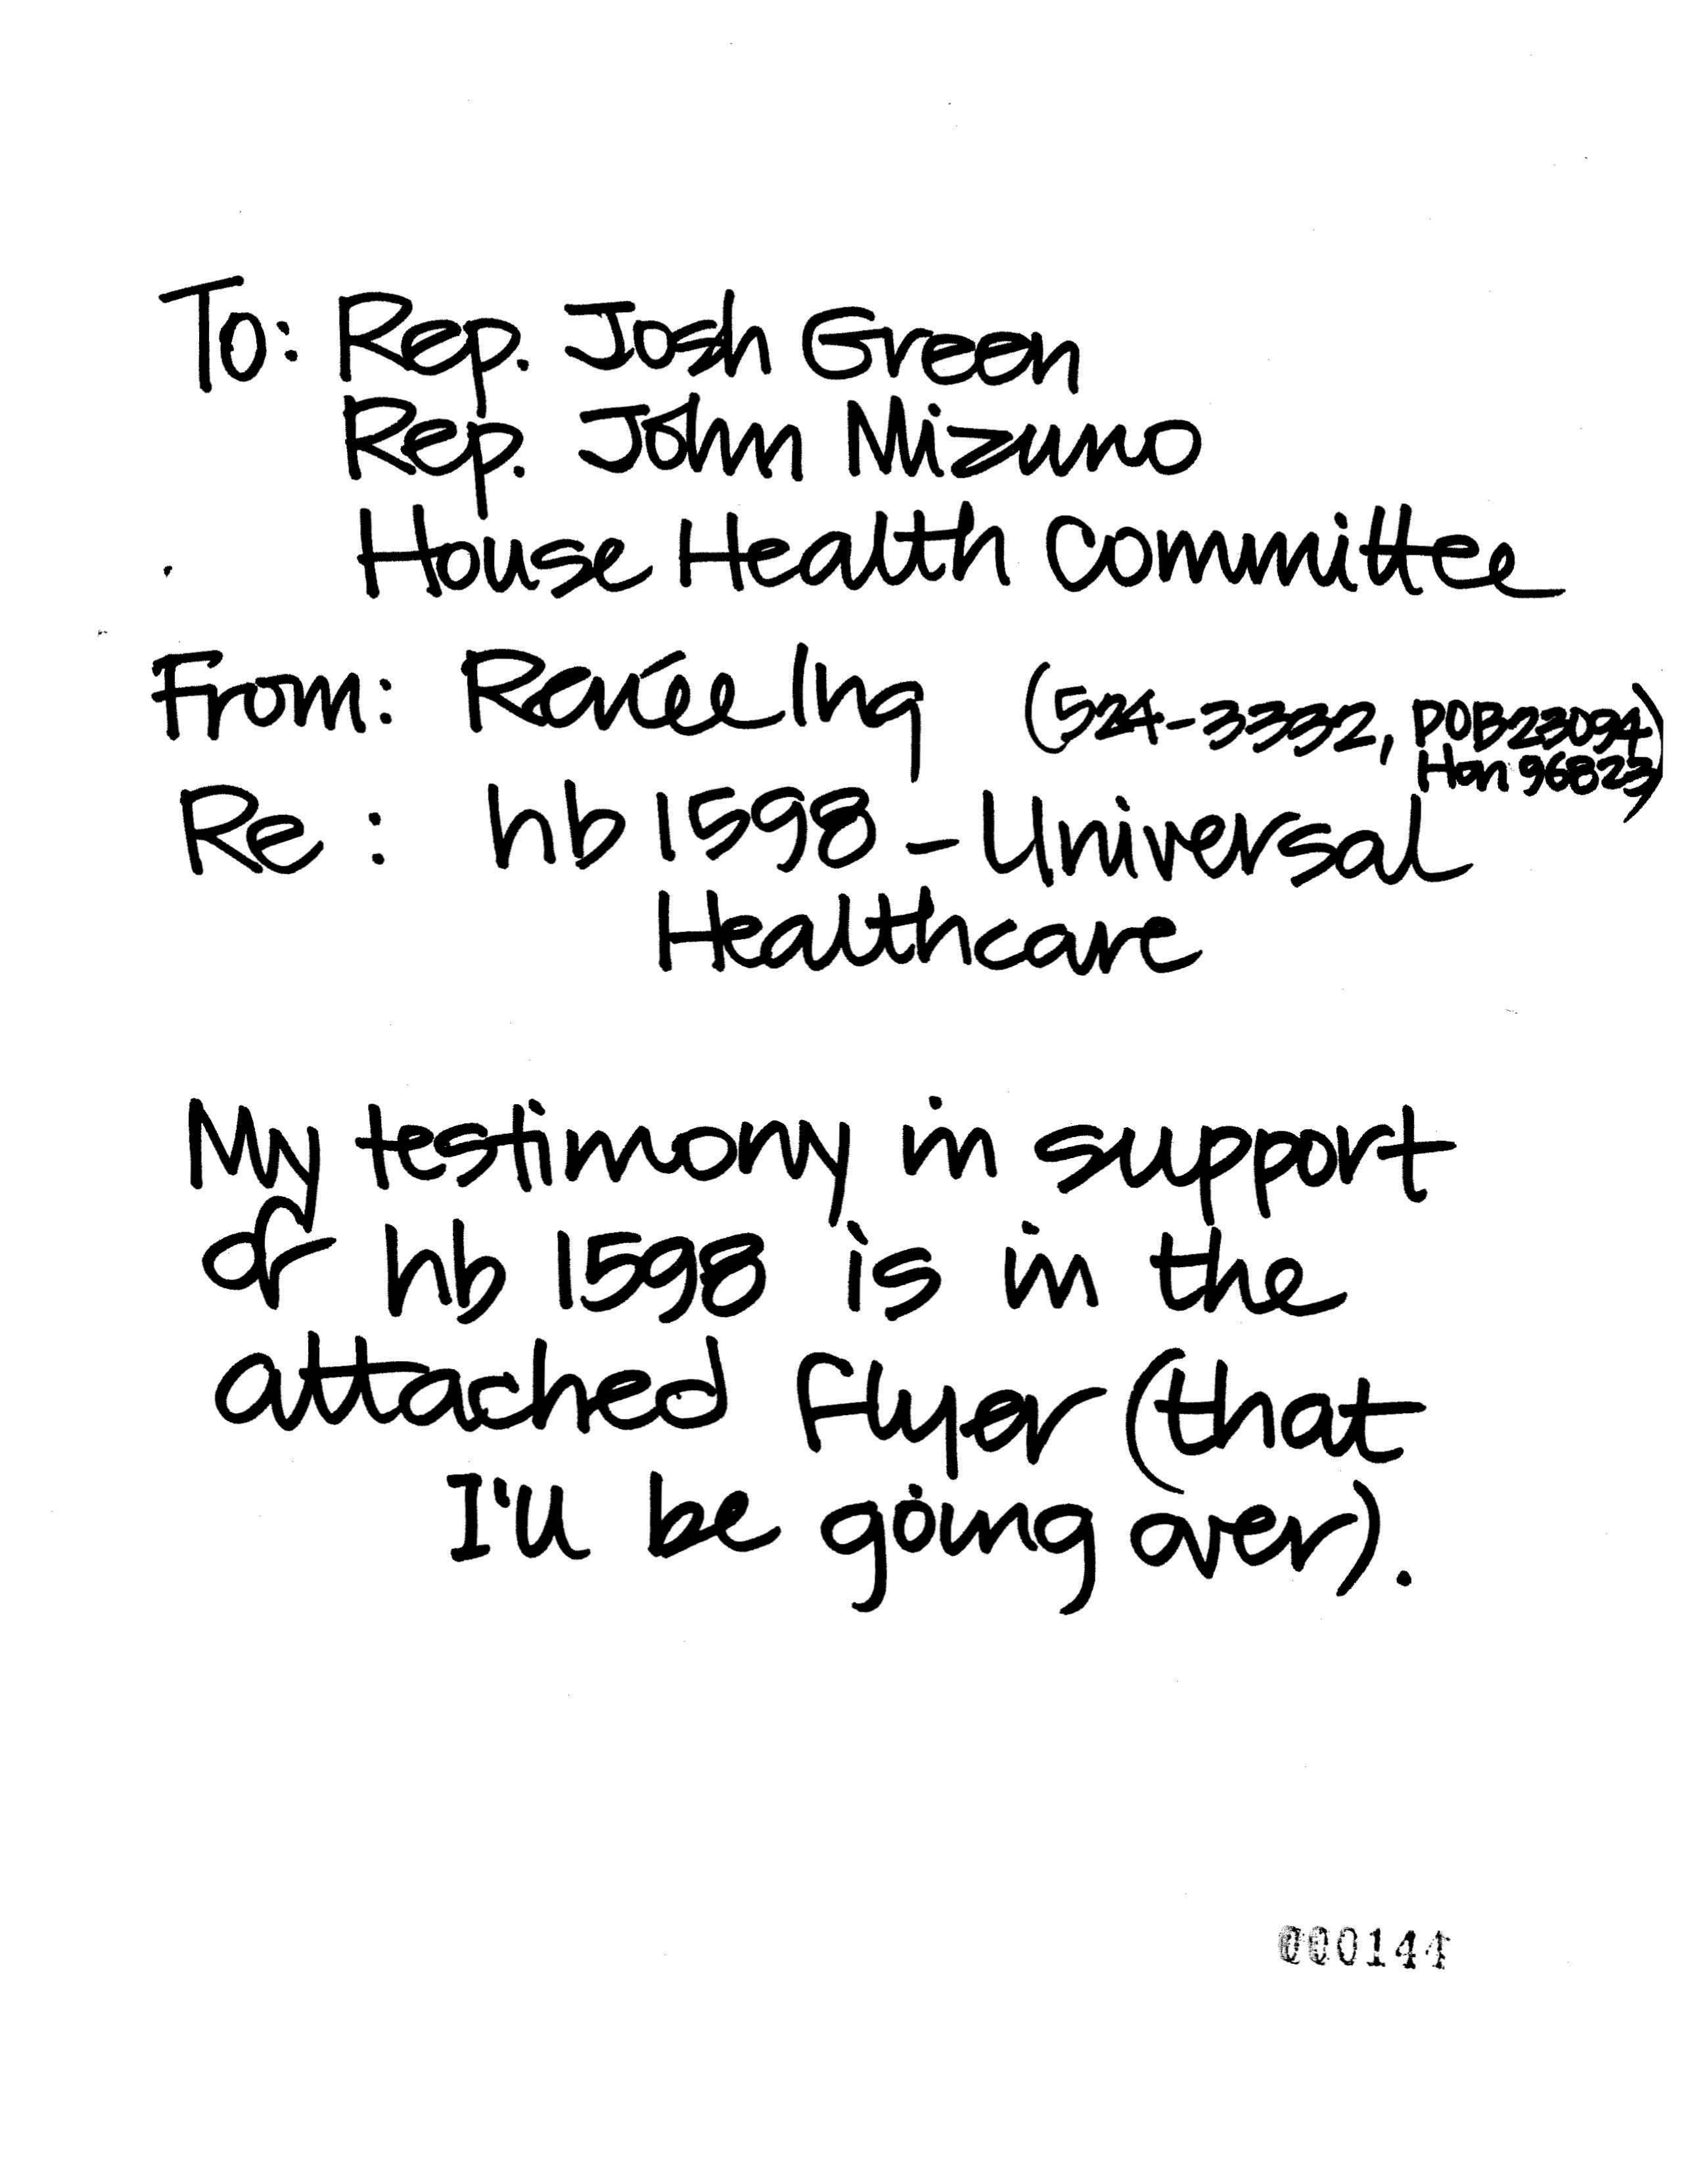 To: Rep. Josh Green
Rep. John Mizuno
House Health Committee
From: Renée Ing (524-3332, POB 23094
Hon 96823)
Re: hb 1598 - Universal
Healthcare
My testimony in support
of hb 1598 is in the
attached flyer (that
I'll be going over).
000144